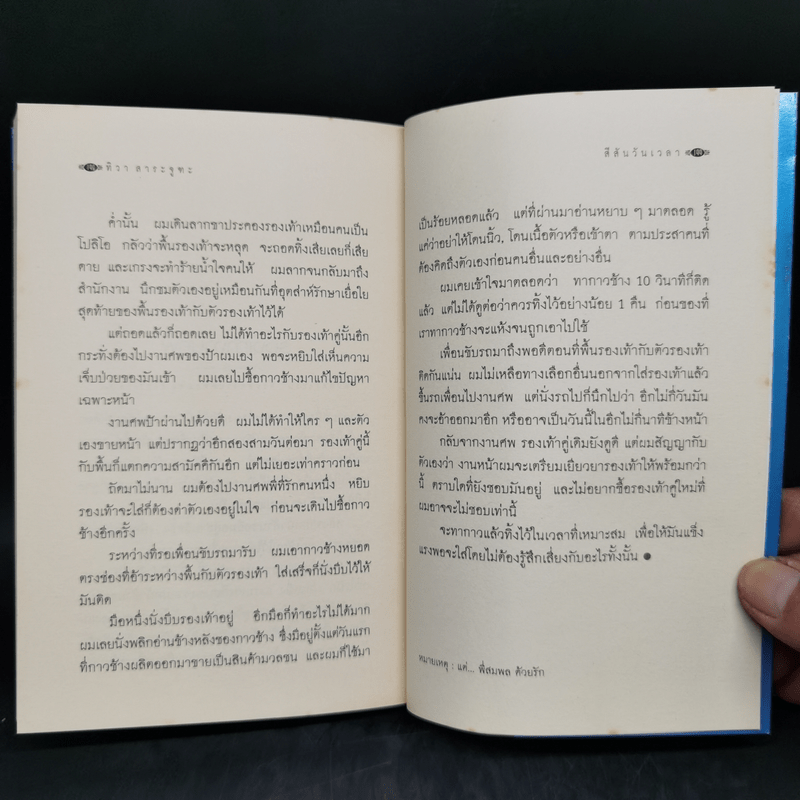 ทิวา สาระจูฑะ
ค่ำนั้น ผมเดินลากขาประคองรองเท้าเหมือนคนเป็น
โปลิโอ กลัวว่าพื้นรองเท้าจะหลุด จะถอดทิ้งเสียเลยก็เสีย
ดาย และเกรงจะทำร้ายน้ำใจคนให้ ผมลากจนกลับมาถึง
สำนักงาน นึกชมตัวเองอยู่เหมือนกันที่อุตส่าห์รักษาเยื่อใย
สุดท้ายของพื้นรองเท้ากับตัวรองเท้าไว้ได้
แต่ถอดแล้วก็ถอดเลย ไม่ได้ทำอะไรกับรองเท้าคู่นั้นอีก
กระทั่งต้องไปงานศพของป้าผมเอง พอจะหยิบใส่เห็นความ
เจ็บป่วยของมันเข้า ผมเลยไปซื้อกาวช้างมาแก้ไขปัญหา
เฉพาะหน้า
งานศพป้าผ่านไปด้วยดี ผมไม่ได้ทำให้ใคร ๆ และตัว
เองขายหน้า แต่ปรากฏว่าอีกสองสามวันต่อมา รองเท้าคู่นี้
กับพื้นก็แตกความสามัคคีกันอีก แต่ไม่เยอะเท่าคราวก่อน
ถัดมาไม่นาน ผมต้องไปงานศพพี่ที่รักคนหนึ่ง หยิบ
รองเท้าจะใส่ก็ต้องด่าตัวเองอยู่ในใจ ก่อนจะเดินไปซื้อกาว
ช้างอีกครั้ง
ระหว่างที่รอเพื่อนขับรถมารับ ผมเอากาวช้างหยอด
ตรงช่องที่อ้าระหว่างพื้นกับตัวรองเท้า ใส่เสร็จก็นั่งบีบไว้ให้
มันติด
มือหนึ่งนั่งบีบรองเท้าอยู่ อีกมือก็ทำอะไรไม่ได้มาก
ผมเลยนั่งพลิกอ่านข้างหลังซองกาวช้าง ซึ่งมีอยู่ตั้งแต่วันแรก
ที่กาวช้างผลิตออกมาขายเป็นสินค้ามวลชน และผมก็ใช้มา
สีสันวันเวลา
เป็นร้อยหลอดแล้ว แต่ที่ผ่านมาอ่านหยาบ ๆ มาตลอด รู้
แค่ว่าอย่าให้โดนนิ้ว, โดนเนื้อตัวหรือเข้าตา ตามประสาคนที่
ต้องคิดถึงตัวเองก่อนคนอื่นและอย่างอื่น
ผมเคยเข้าใจมาตลอดว่า ทากาวช้าง 10 วินาทีก็ติด
แล้ว แต่ไม่ได้ดูต่อว่าควรทิ้งไว้อย่างน้อย 1 คืน ก่อนของที่
เราทากาวช้างจะแห้งจนถูกเอาไปใช้
เพื่อนขับรถมาถึงพอดีตอนที่พื้นรองเท้ากับตัวรองเท้า
ติดกันแน่น ผมไม่เหลือทางเลือกอื่นนอกจากใส่รองเท้าแล้ว
ขึ้นรถเพื่อนไปงานศพ แต่นั่งรถไปก็นึกไปว่า อีกไม่กี่วันมัน
คงจะอ้าออกมาอีก หรืออาจเป็นวันนี้ในอีกไม่กี่นาทีข้างหน้า
กลับจากงานศพ รองเท้าคู่เดิมยังดูดี แต่ผมสัญญากับ
ตัวเองว่า งานหน้าผมจะเตรียมเยียวยารองเท้าให้พร้อมกว่า
นี้ ตราบใดที่ยังชอบมันอยู่ และไม่อยากซื้อรองเท้าคู่ใหม่ที่
ผมอาจจะไม่ชอบเท่านี้
จะทากาวแล้วทิ้งไว้ในเวลาที่เหมาะสม เพื่อให้มันแข็ง
แรงพอจะใส่โดยไม่ต้องรู้สึกเสี่ยงกับอะไรทั้งนั้น ●
หมายเหตุ : แด่... พี่สมพล ด้วยรัก